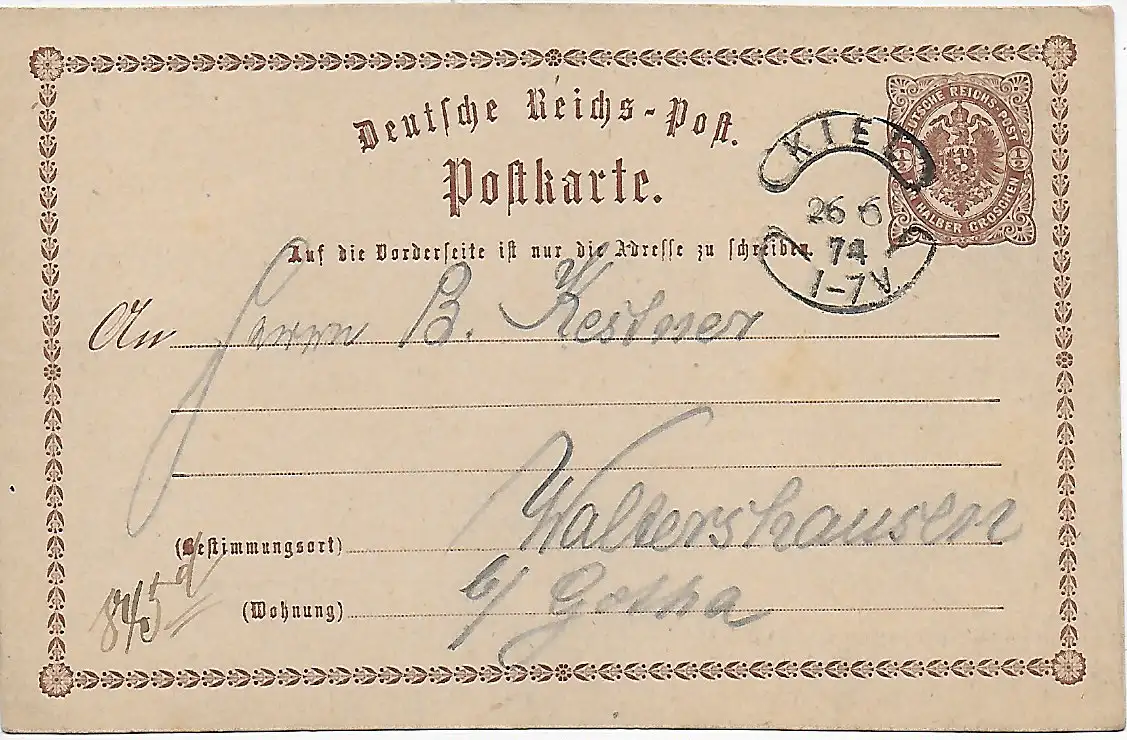 Deutsche Reichs-Post.
Postkarte.
DEUTSCHE REICHS-POST
1/2 1/2
EIN HALBER GROSCHEN
KIEL
26 6
74
1-7V
Auf die Vorderseite ist nur die Adresse zu schreiben.
An Herrn B. Kestner
(Bestimmungsort) Waltershausen
(Wohnung) b/ Gotha